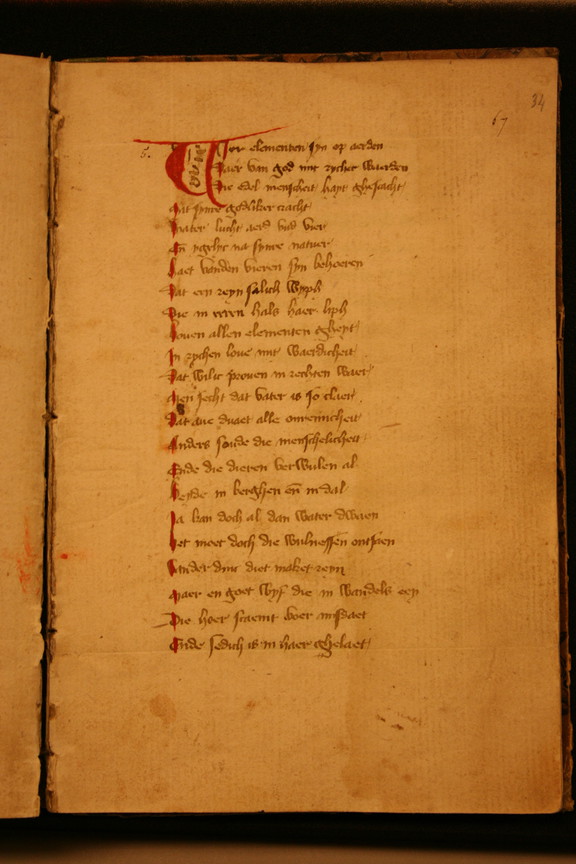 34
67
5.
Vier elementen syn op aerden
Daer van god mit rycher waerden
Die edel menscheit hayt ghesacht
Mit synre godliker cracht
Water lucht aerd vnd vier
En ygelyc na synre natuer
Laet vanden vieren syn behoeren
Dat een reyn salich wyph
Die in eren hals haer liph
Bouen allen elementen gheyt
In rychen loue mit waerdicheit
Dat wilic prouen in rechten waer
Men secht dat water is so claer
Dat aue duaet alle onreinicheit
Anders soude die menschelicheit
Ende die dieren verwulen al
Beyde in berghen en in dal
Ia kan doch al dan water dwaen
Het moet doch die wulnessen ontfaen
Ander dinc diet maket reyn
Maer en goet wyf die in wandels eyn
Die heer scaemt voer misdaet
Ende sedich is in haer ghelaet